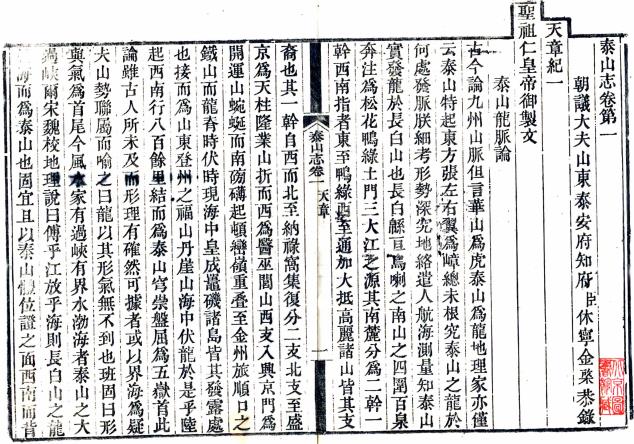 泰山志卷第一
朝議大夫山東泰安府知府臣休寧金棨恭錄
天章紀一
聖祖仁皇帝御製文
泰山龍脈論
古今論九州山脈但言華山爲虎泰山爲龍地理家亦僅
云泰山特起東方張左右翼爲嶂總未根究泰山之龍於
何處發脈朕細考形勢深究地絡遣人航海測量知泰山
實發龍於長白山也長白緜亘烏喇之南山之四圍百泉
奔注爲松花鴨綠土門三大江之源其南麓分爲二幹一
幹西南指者東至鴨綠西至通加大抵高麗諸山皆其支
泰山志卷一 天章 一
裔也其一幹自西而北至納祿窩集復分二支北支至盛
京爲天柱隆業山折而西爲醫巫閭山西支入興京門爲
開運山蜿蜒而南磅礴起頓巒嶺重疊至金州旅順口之
鐵山而龍脊時伏時現海中皇成鼉磯諸島皆其發露處
也接而爲山東登州之福山丹崖山海中伏龍於是乎陸
起西南行八百餘里結而爲泰山穹崇盤屈爲五嶽首此
論雖古人所未及而形理有確然可據者或以界海爲疑
夫山勢聯屬而喻之曰龍以其形氣無不到也班固曰形
與氣爲首尾今風水家有過峽有界水渤海者泰山之大
過峽爾宋魏校地理說曰傅乎江放乎海則長白山之龍
海而爲泰山也固宜且以泰山體位證之面西南而背